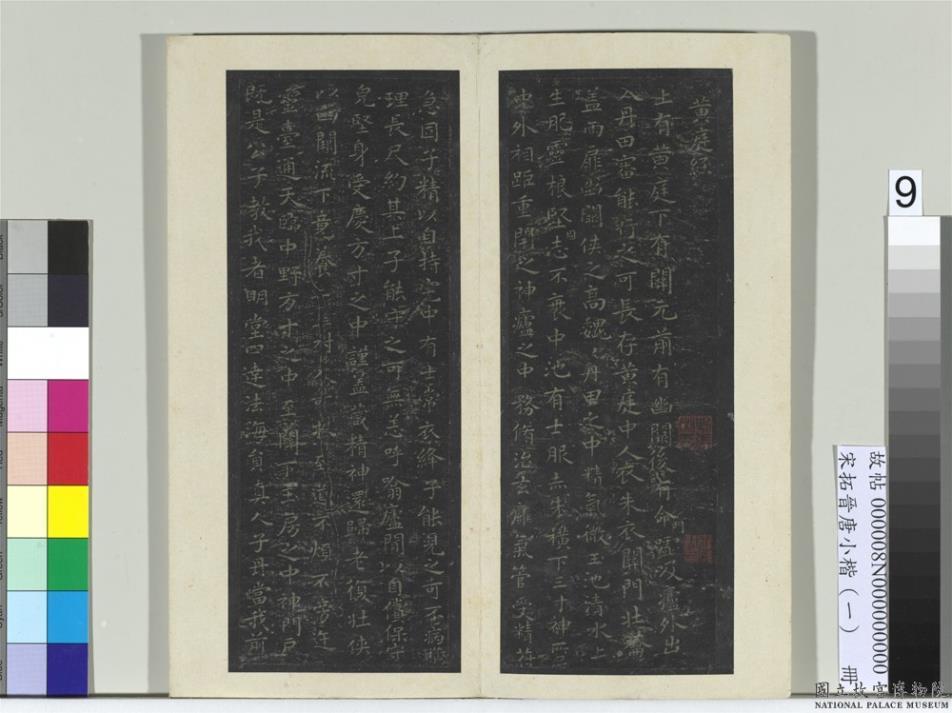 黄庭經
上有黄庭下有關元前有幽關後有命門噓吸廬外出
入丹田審能行之可長存黄庭中人衣朱衣關門壮籥
盖兩扉幽關侠之高魏魏丹田之中精氣微玉池清水上
生肥靈根堅志不衰中池有士服赤朱横下三寸神所
中外相距重閉之神廬之中務脩治玄廱氣管受精符
急固子精以自持宅中有士常衣絳子能見之可不病
理長尺約其上子能守之可無恙呼噏廬間以自償保守
皃堅身受慶方寸之中謹盖藏精神還歸老復壮侠
以幽關流下竟養 至道不煩不旁迕
靈臺通天臨中野方寸之中至關下玉房之中神門戸
既是公子教我者明堂四達法海員真人子丹當我前
9
故帖 000008N000000000
宋拓晉唐小楷（一） 冊
國立故宮博物院
NATIONAL PALACE MUSEUM